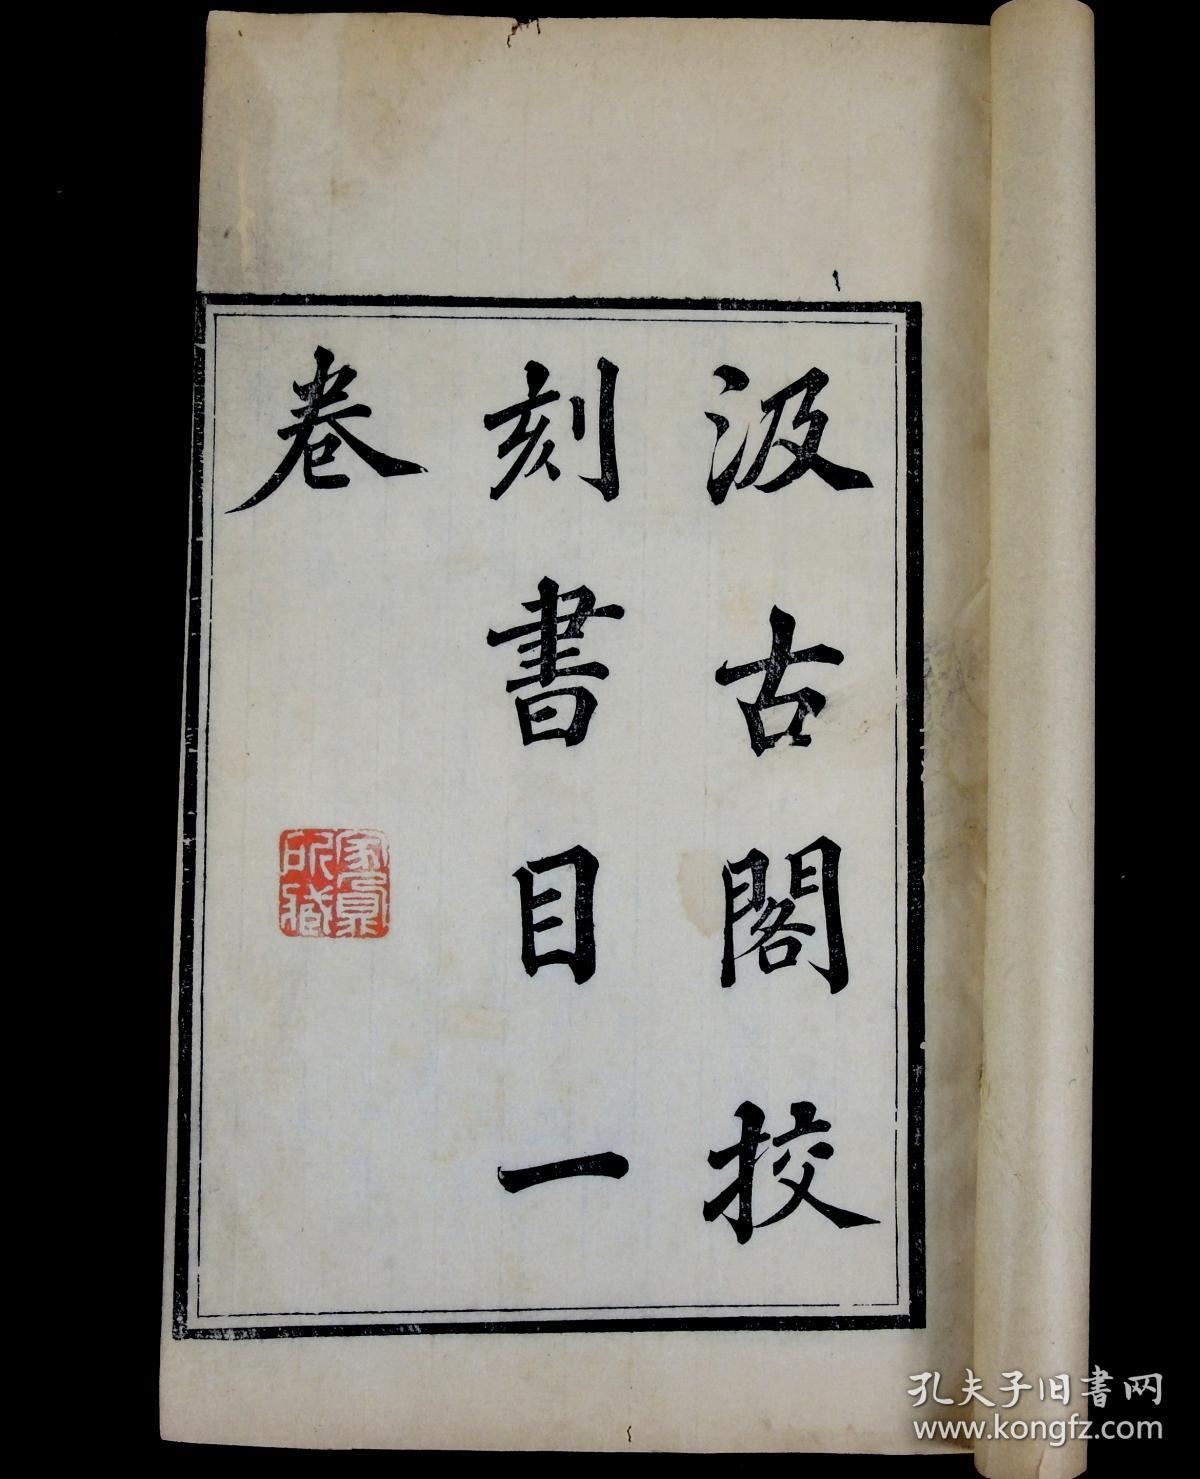 汲古閣挍
刻書目一
卷
所藏
孔夫子旧書网
www.kongfz.com